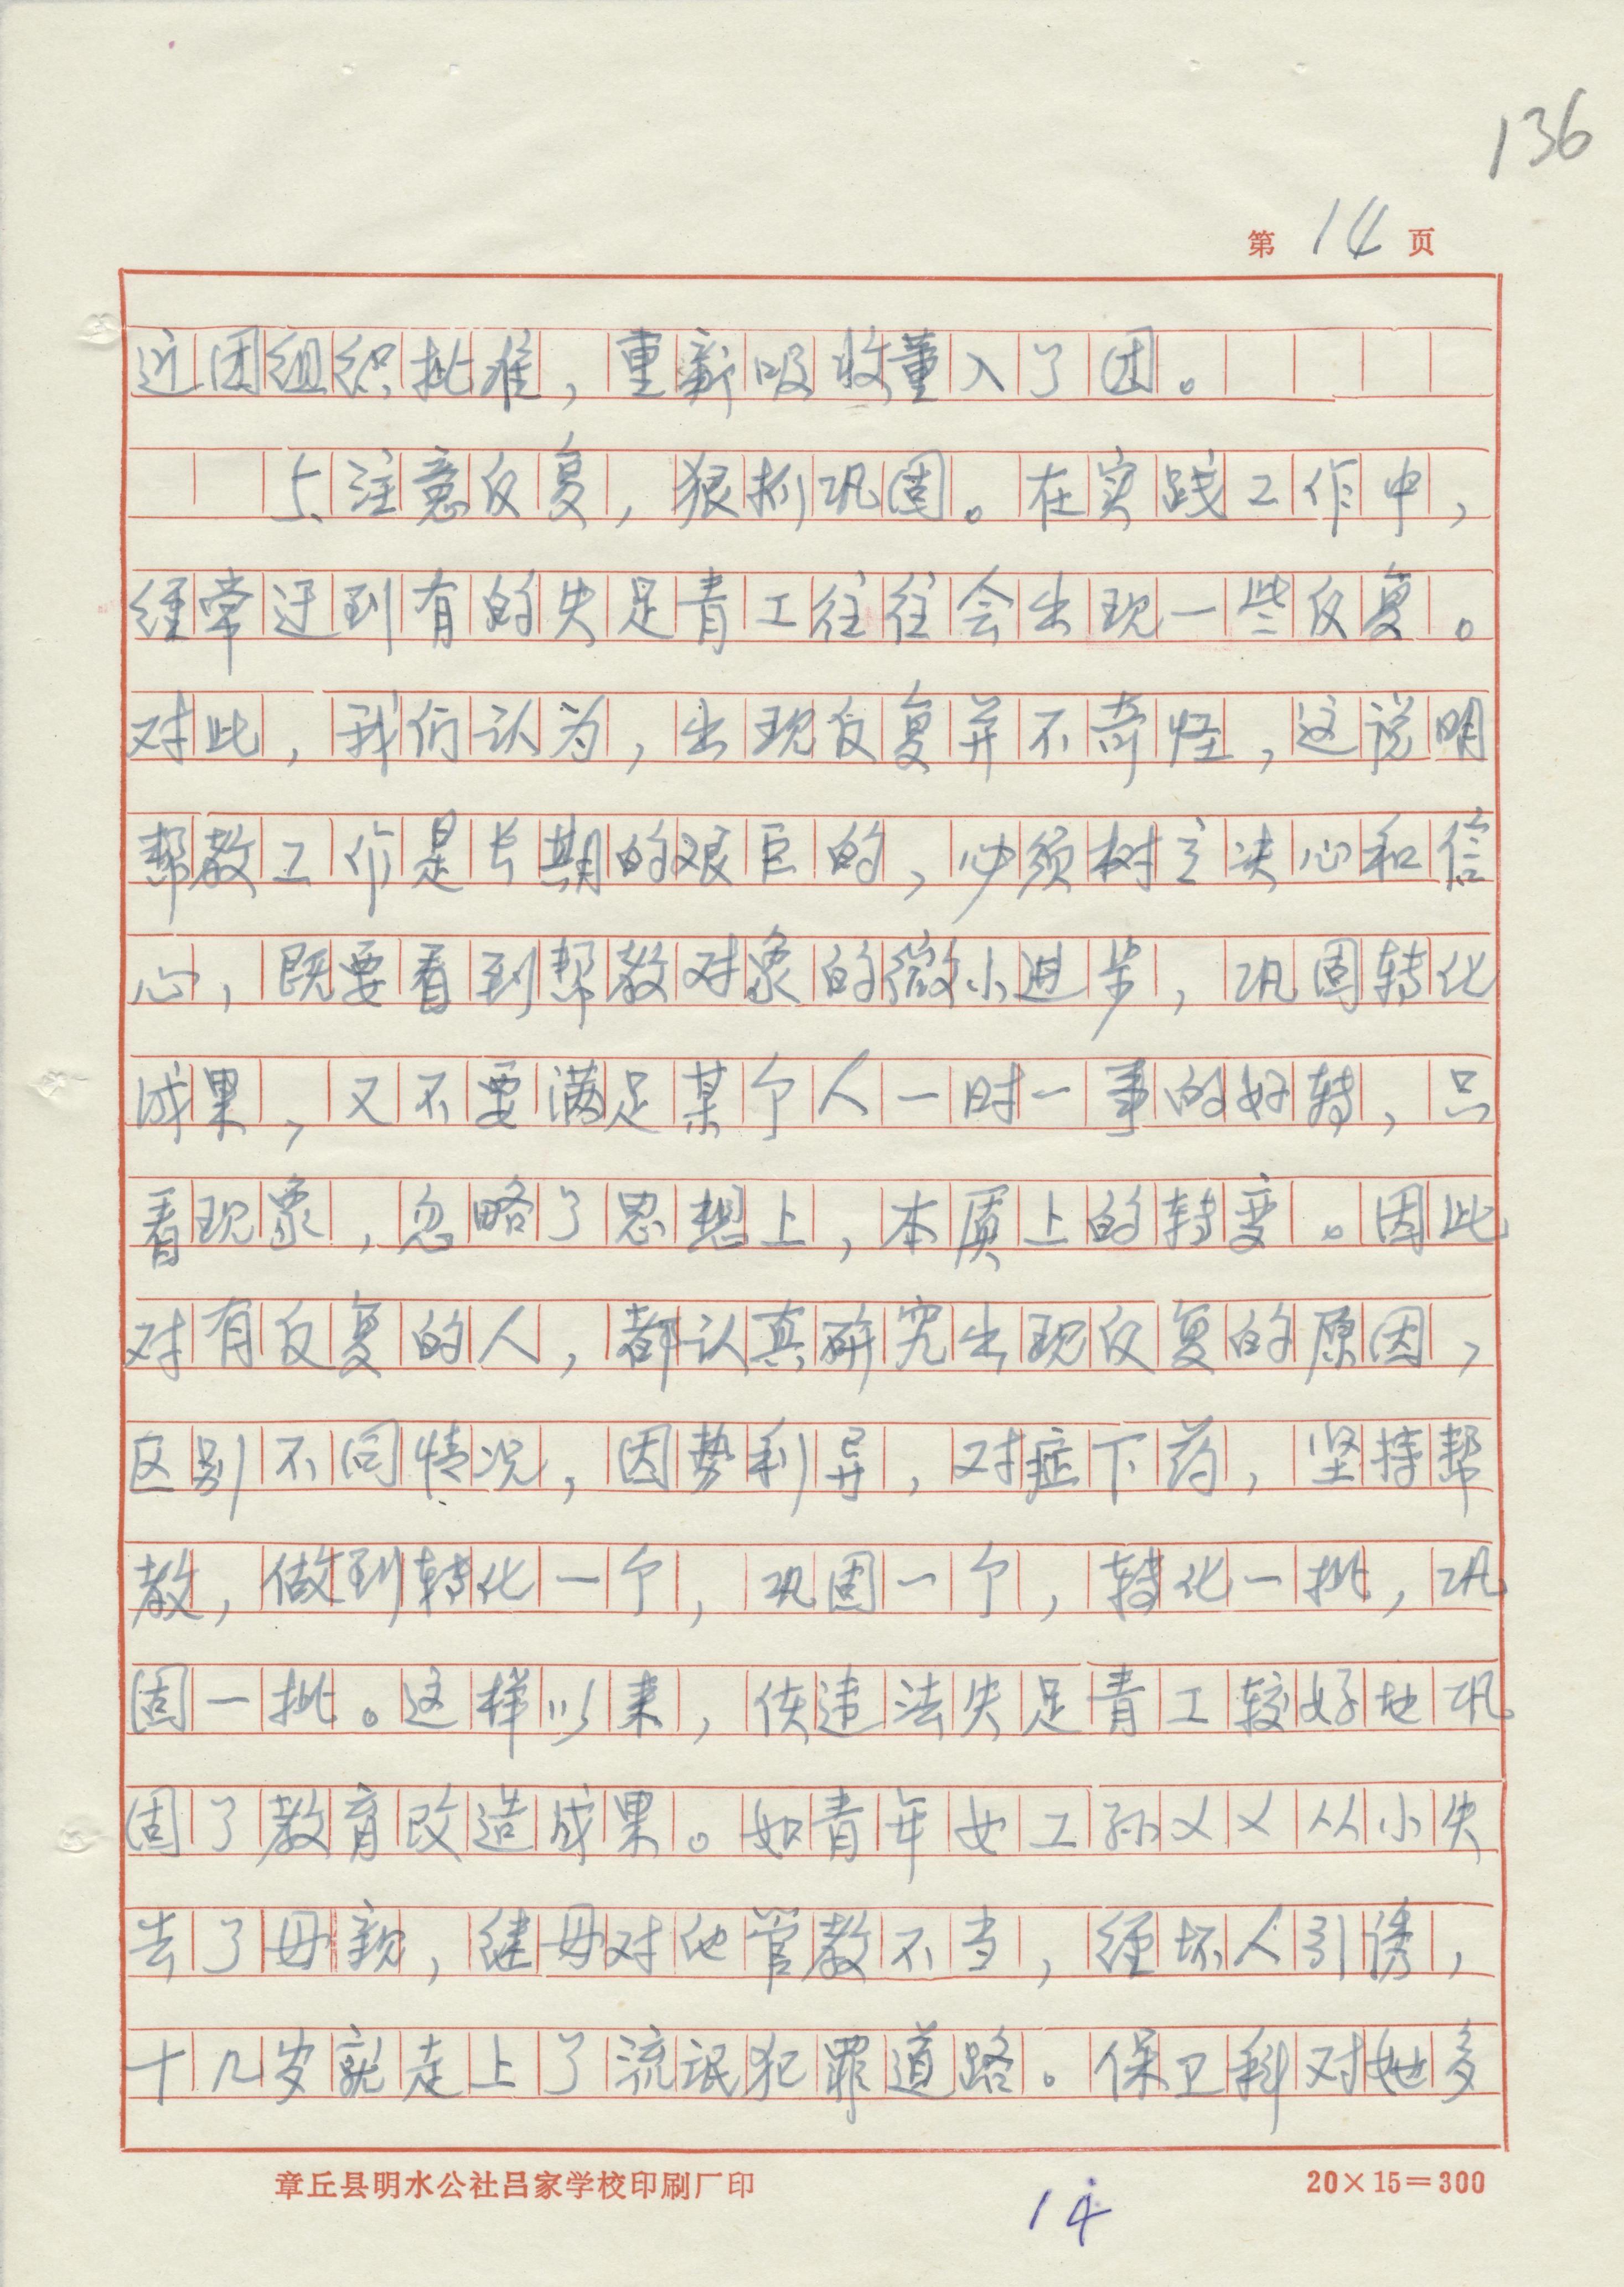 136
第 14 页
近团组织批准，重新吸收董入了团。
5.注意反复，狠抓巩固。在实践工作中，
经常迂到有的失足青工往往会出现一些反复。
对此，我们认为，出现反复并不奇怪，这说明
帮教工作是长期的艰巨的，必须树立决心和信
心，既要看到帮教对象的微小进步，巩固转化
成果，又不要满足某个人一时一事的好转，只
看现象，忽略了思想上，本质上的转变。因此
对有反复的人，都认真研究出现反复的原因，
区别不同情况，因势利导，对症下药，坚持帮
教，做到转化一个，巩固一个，转化一批，巩
固一批。这样以来，使违法失足青工较好地巩
固了教育改造成果。如青年女工孙㐅㐅从小失
去了母亲，继母对他管教不当，经坏人引诱，
十几岁就走上了流氓犯罪道路。保卫科对她多
章丘县明水公社吕家学校印刷厂印 20×15=300
14